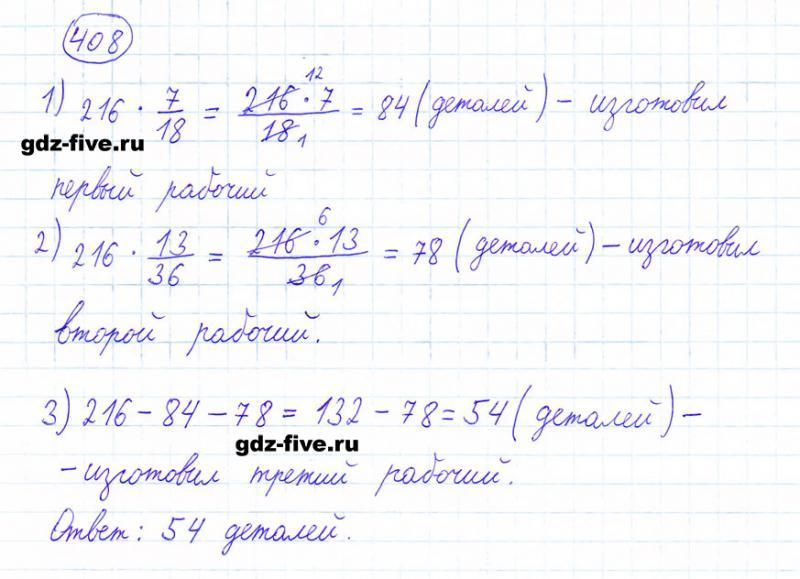 408
1) 216 · 7/18 = 216 · 7/18 = 84 (деталей) – изготовил
12
1
gdz-five.ru
первый рабочий
2) 216 · 13/36 = 216 · 13/36 = 78 (деталей) – изготовил
6
1
второй рабочий.
3) 216 – 84 – 78 = 132 – 78 = 54 (деталей) –
gdz-five.ru
– изготовил третий рабочий.
Ответ: 54 деталей.